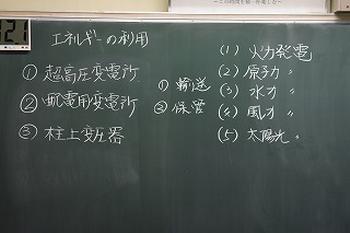 エネルギーの利用
① 超高圧変電所
② 配電用変電所
③ 柱上変圧器
① 輸送
② 保管
(1) 火力発電
(2) 原子力 〃
(3) 水力 〃
(4) 風力 〃
(5) 太陽光 〃
21